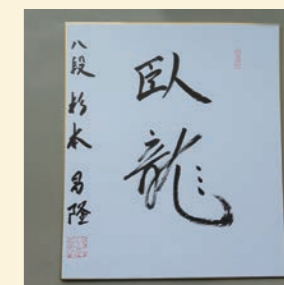 臥龍
八段 杉本 昌隆